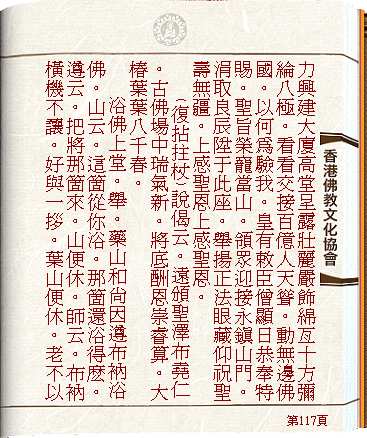 力興建大廈高堂呈露壯麗嚴飾綿亙十方彌
綸八極。看看交接百億人天聳。動無邊佛
國。以何為驗我。皇有敕臣僧顯日恭奉特
賜。聖旨榮寵當山。領眾迎接永鎮山門。
涓取良辰陞于此座。舉揚正法眼藏仰祝聖
壽無疆。上感聖恩上感聖恩。
(復拈拄杖)說偈云。遠頒聖澤布堯仁
。古佛場中瑞氣新。將底酬恩崇睿算。大
椿葉葉八千春。
浴佛上堂。舉。藥山和尚因遵布衲浴
佛。山云。這箇從你浴。那箇還浴得麼。
遵云。把將那箇來。山便休。師云。布衲
橫機不讓。好與一拶。葉山便休。老不以
香港佛教文化協會
第117頁